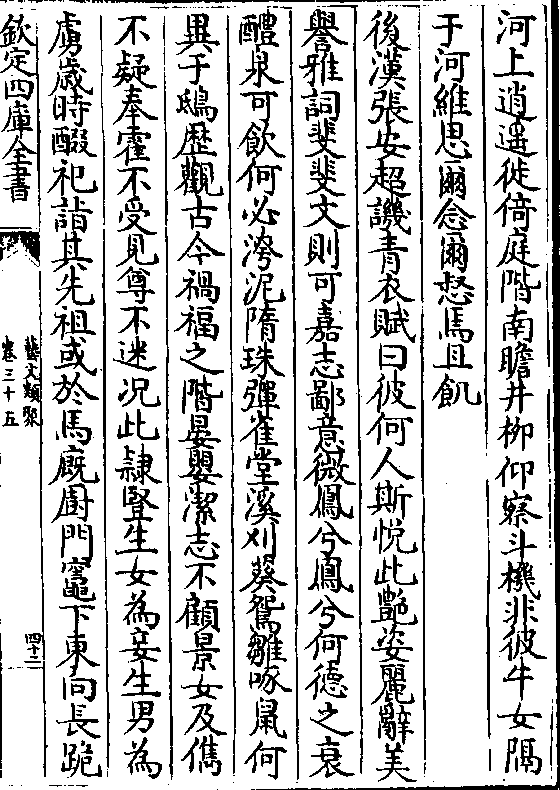 河上逍遙徙倚庭階南瞻井柳仰察斗機非彼牛女隔
于河維思爾念爾惄焉且飢
後漢張安超譏青衣賦曰彼何人斯悅此艷姿麗辭美
譽雅詞斐斐文則可嘉志鄙意微鳳兮鳳兮何德之衰
醴泉可飲何必洿泥隋珠彈雀堂溪刈葵鴛雛啄鼠何
異于鴟歷觀古今禍福之階晏嬰潔志不顧景女及儁
不疑奉霍不受見尊不迷况此隷豎生女為妾生男為
虜歲時酹祀詣其先祖或於馬廐廚門竈下東向長跪
欽定四庫全書
藝文類聚
卷三十五
四十三